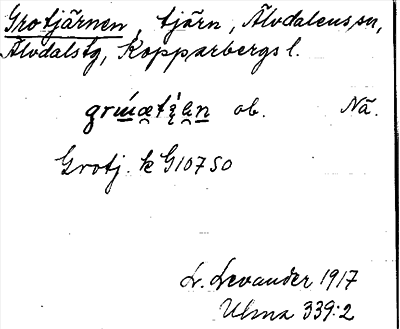 Grotjärnen, tjärn, Älvdalens sn,
Älvdalstg, Kopparbergs l.
ob. Nä.
Grotj. k G107 SO
L. Levander 1917
Ulma 339:2